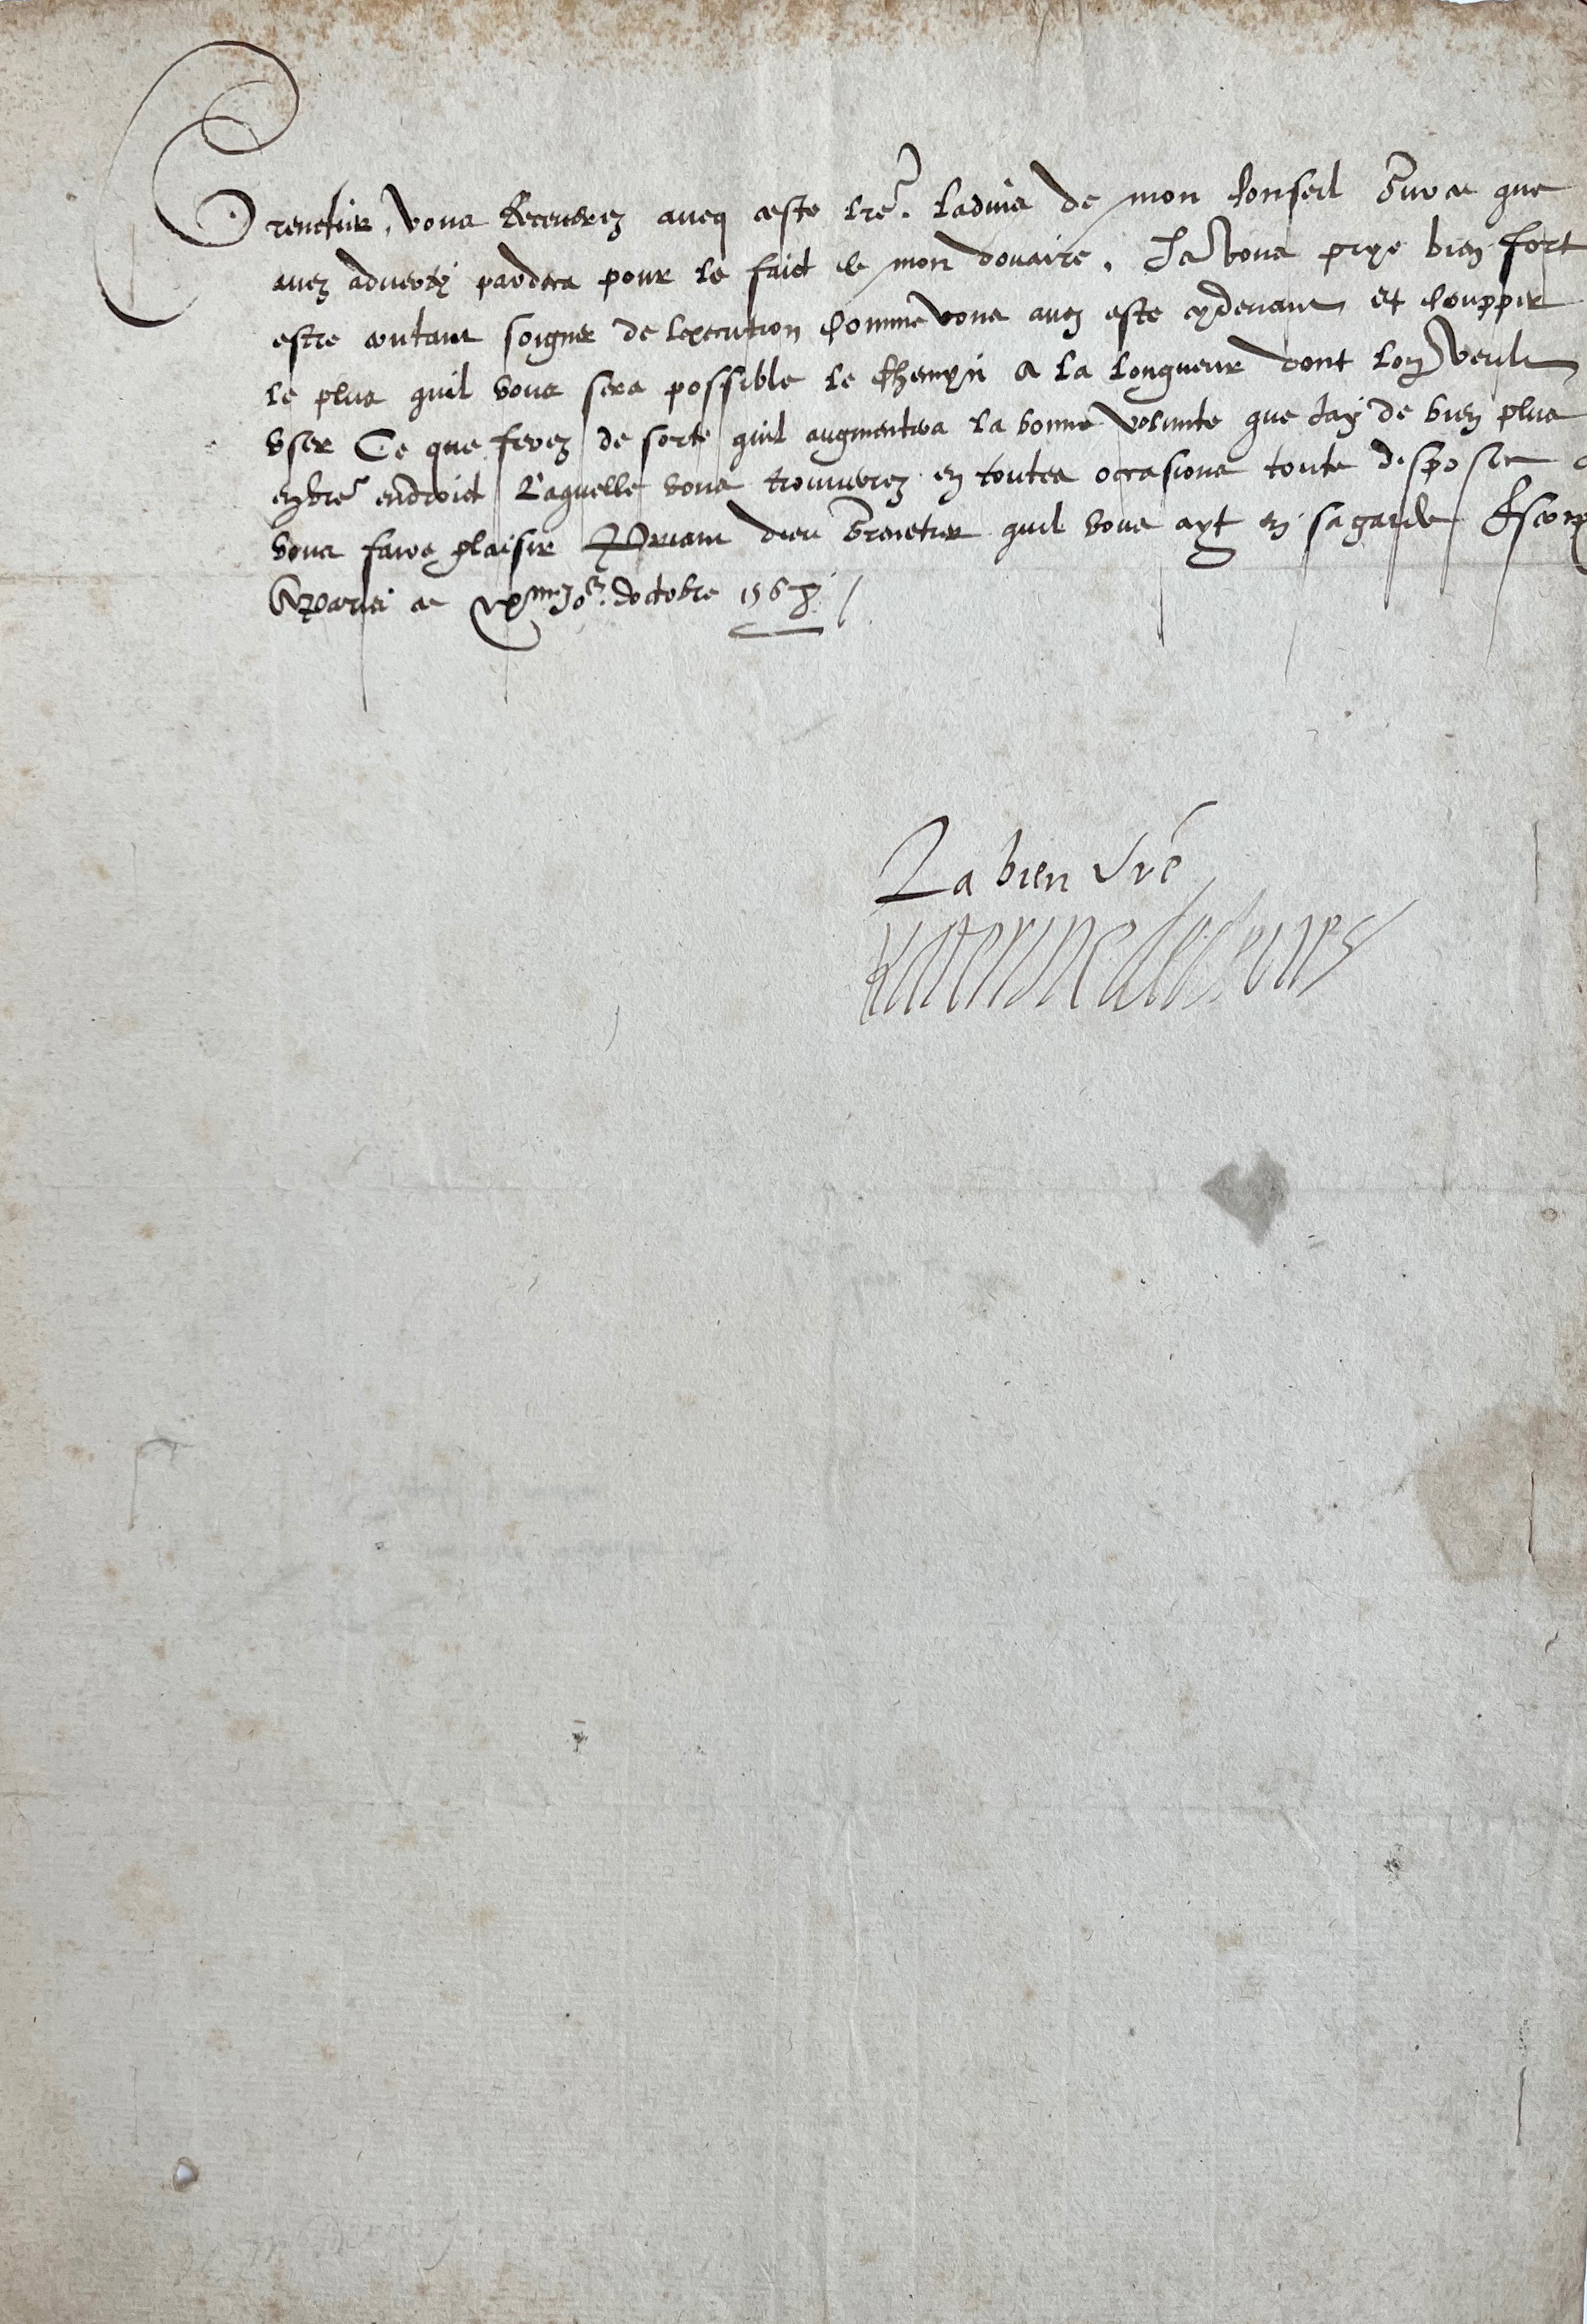 Grenetier, vous Receverez aueq ceste lrē. Ladvis de mon Conseil Sur ce que
auez aduerty pardeca pour le faict de mon douaire. Je vous prye bien fort
estre autant soigneux de Lexecution Comme vous auez este cydeuant et Coupper
le plus quil vous sera possible le Chemyn a la longueur dont lon veult
vser Ce que ferez de sorte quil augmentera la bonne volunte que Jay de bien plus
en vrē endroict Laquelle vous trouuerez en toutes occasions toute disposée a
vous faire plaisir Priant dieu Grenetier quil vous ayt en sa garde Escript
A Paris ce Jor. doctobre 1568
La bien vrē
Katerine de